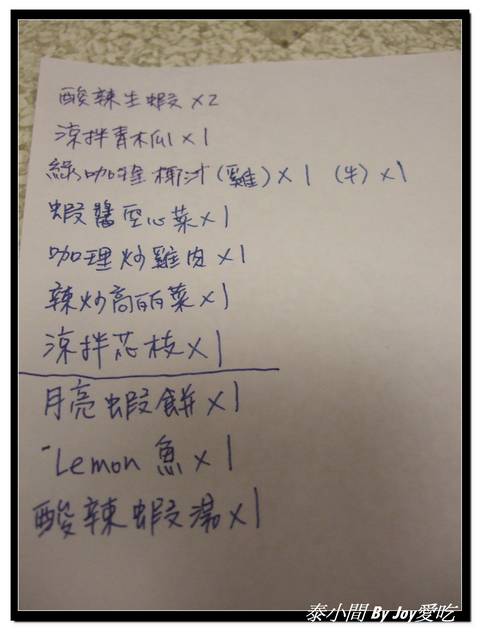 酸辣生蝦 x2
涼拌青木瓜 x 1
綠咖哩椰汁(雞) x 1 (牛) x 1
蝦醬空心菜 x 1
咖理炒雞肉 x 1
辣炒高丽菜 x 1
涼拌花枝 x 1
月亮蝦餅 x 1
-Lemon 魚 x 1
酸辣蝦湯 x 1
泰小間 By Joy愛吃